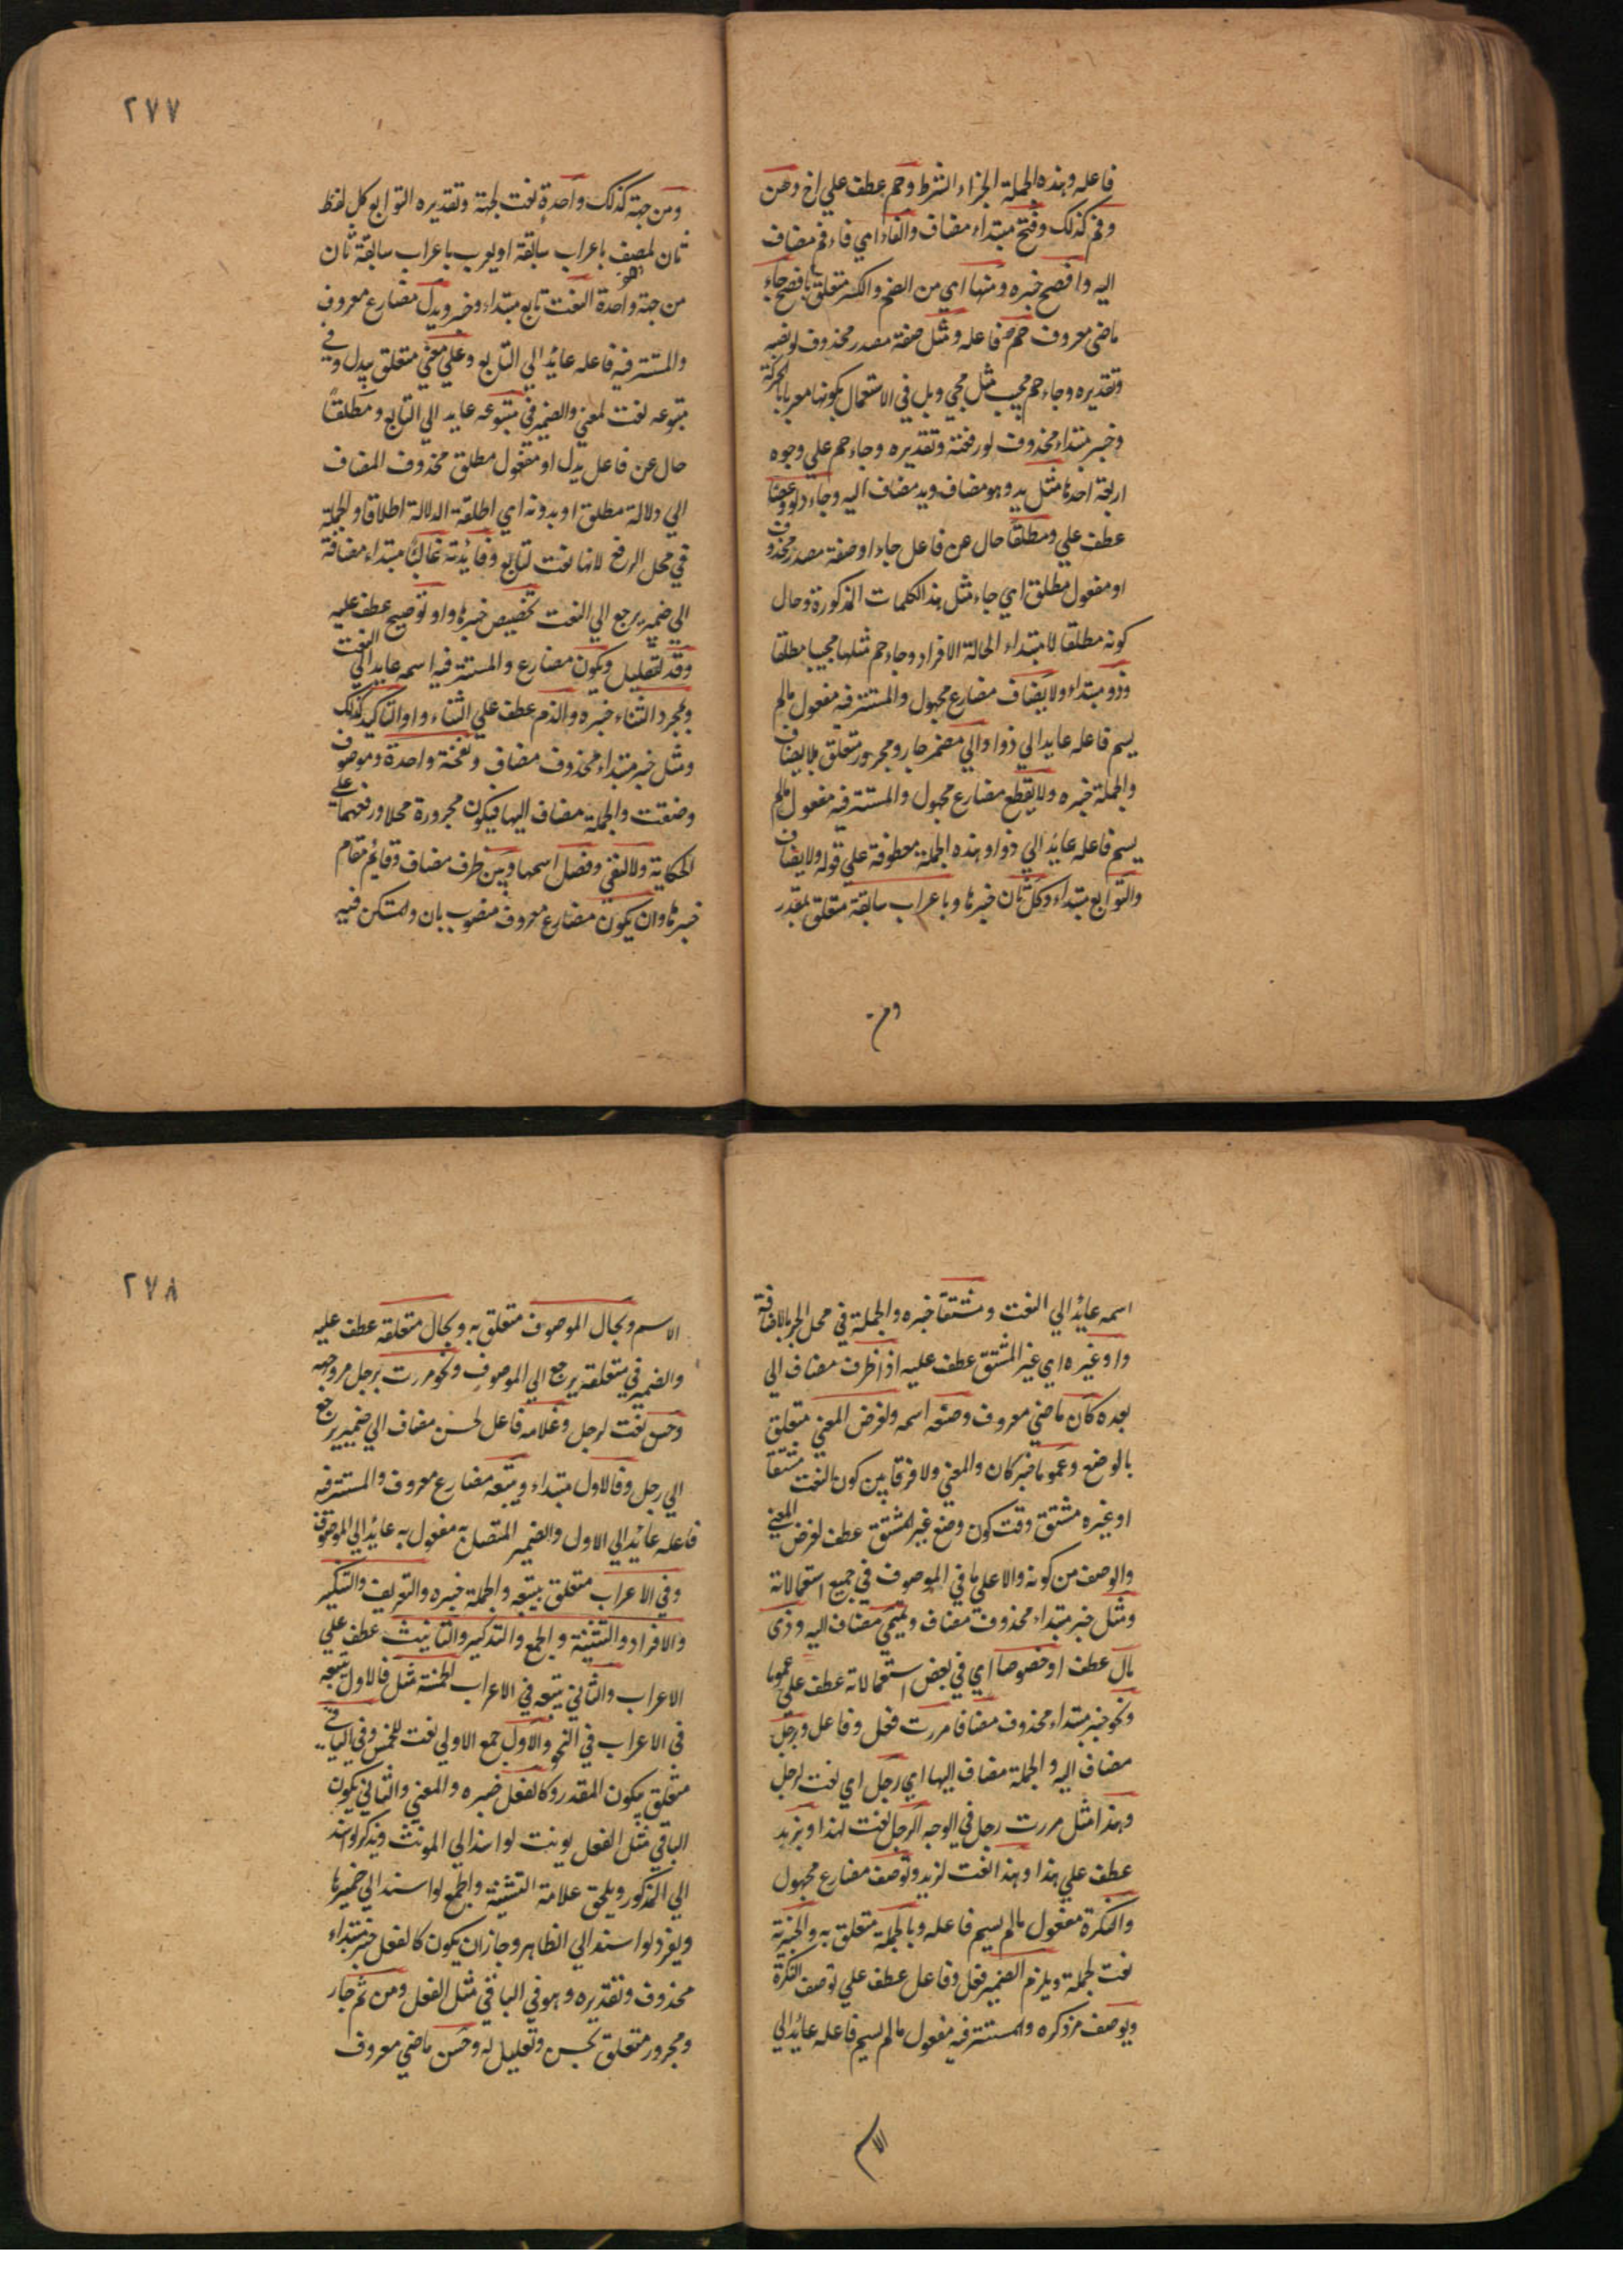 فاعله وهذه الجملة الجزاء الشرط وحم عطف علي اخ وهن
وفم كذلك وفتح مبتداء مضاف والفاء اي فاء فم مضاف
اليه وافصح خبره ومنها اي من الضم والكسر متعلق بافصح جاء
ماضي معروف حم فاعله ومثل صفة مصدر محذوف لو نصبه
وتقديره وجاء حم مجيئا مثل مجي ويل في الاستعمال بكونها معربا بالحركة
وخبر مبتداء محذوف لو رفعته وتقديره وجاء حم علي وجوه
اربعة احدها مثل يد وهو مضاف ويد مضاف اليه وجاء دلو وعصا
عطف علي ومطلقا حال عن فاعل جاء او صفة مصدر محذوف
او مفعول مطلق اي جاء مثل هذا الكلمات المذكورة وحال
كونه مطلقا لا مبتداء الحالة الافراد وجاء حم مثلها مجيا مطلقا
وذو مبتداء ولا يضاف مضارع مجهول والمستتر فيه مفعول مالم
يسم فاعله عايد الي ذو او الي مضمر جار ومجرور متعلق بلا يضاف
والجملة خبره ولا يقطع مضارع مجهول والمستتر فيه مفعول مالم
يسم فاعله عائد الي ذو او هذه الجملة معطوفة علي قوله ولا يضاف
والتوابع مبتداء وكل ثان خبرها وباعراب سابقة متعلق بمقدر
ومن
٢٧٧
ومن جهة كذلك واحدة نعت لجهة وتقديره التوابع كل لفظ
ثان لمصف باعراب سابقة او يعرب باعراب سابقة ثان
من جهة واحدة النعت تابع مبتداء وخبر ويدل مضارع معروف
والمستتر فيه فاعله عائد الي التابع وعلي معني متعلق بيدل وفي
متبوعه نعت لمعني والضمير في متبوعه عايد الي التابع ومطلقا
حال عن فاعل يدل او مفعول مطلق محذوف المضاف
الي دلالة مطلق او بدونه اي اطلقة الدلالة اطلاقا والجملة
في محل الرفع لانها نعت لتابع وفائدته غالبا مبتداء مضافة
الي ضمير يرجع الي النعت تخصيص خبرها واو توضيح عطف عليه
وقد لتقليل ويكون مضارع والمستتر فيه اسمه عايد الي النعت
ولمجرد الثناء خبره والذم عطف علي الثناء واو التاكيد كذلك
ومثل خبر مبتداء محذوف مضاف ونفخة واحدة وموصوف
وصفت والجملة مضاف اليها فيكون مجرورة محلا ورفعهما علي
الحكاية ولا لنفي وفصل اسمها وبين ظرف مضاف وقائم مقام
خبرها وان يكون مضارع معروف منصوب بان والمتكن فيه
اسمه عائد الي النعت ومشتقا خبره والجملة في محل الجر بالاضافة
واو غيره اي غير المشتق عطف عليه اذا ظرف مضاف الي
بعده كان ماضي معروف وضعه اسمه ولغرض المعني متعلق
بالوضع وعموما خبر كان والمعني ولا فرقا بين كون النعت مشتقا
او غيره مشتق وقت كون وضع غير المشتق عطف لغرض المعني
والوصف من كونه والا علي ما في الموصوف في جميع استعمالاته
ومثل خبر مبتداء محذوف مضاف وتميمي مضاف اليه وذي
مال عطف او خصوصا اي في بعض استعمالاته عطف علي عموما
ونحو خبر مبتداء محذوف مضافا مررت فعل وفاعل وبرجل
مضاف اليه والجملة مضاف اليها اي رجل اي نعت لرجل
وهذا مثل مررت رجل في الوجه الرجل نعت لهذا وبزيد
عطف علي هذا وهذا نعت لزيد وتوصف مضارع مجهول
والنكرة مفعول مالم يسم فاعله وبالجملة متعلق به والخبرية
نعت لجملة ويلزم الضمير فعل وفاعل عطف علي توصف النكرة
ويوصف مر ذكره والمستتر فيه مفعول مالم يسم فاعله عائد الي
الاسم
٢٧٨
الاسم وبحال الموصوف متعلق به وبحال متعلقه عطف عليه
والضمير في متعلقه يرجع الي الموصوف ونحو مررت برجل مر وجهه
وحسن نعت لرجل وغلامه فاعل لحسن مضاف الي ضمير يرجع
الي رجل وفالاول مبتداء ويتبعه مضارع معروف والمستتر فيه
فاعله عائد الي الاول والضمير المتصل به مفعول به عائد الي الموصوف
وفي الاعراب متعلق بيتبعه والجملة خبره والتعريف والتنكير
والافراد والتثنية والجمع والتذكير والتانيث عطف علي
الاعراب والثاني يتبعه في الاعراب لخمسة مثل فالاول يتبعه
في الاعراب في النحو والاول جمع الاولي نعت للخمس وفي الباقي
متعلق بيكون المقدر وكالفعل خبره والمعني والثاني يكون
الباقي مثل الفعل يونث لو اسند الي المونث ويذكر لو اسند
الي المذكور ويلحق علامة التثنية والجمع لو اسند الي ضميرها
ويفرد لو اسند الي الظاهر وجاز ان يكون كالفعل خبر مبتداء
محذوف وتقديره وهو في الباقي مثل الفعل ومن ثم جار
ومجرور متعلق بحسن وتعليل له وحسن ماضي معروف